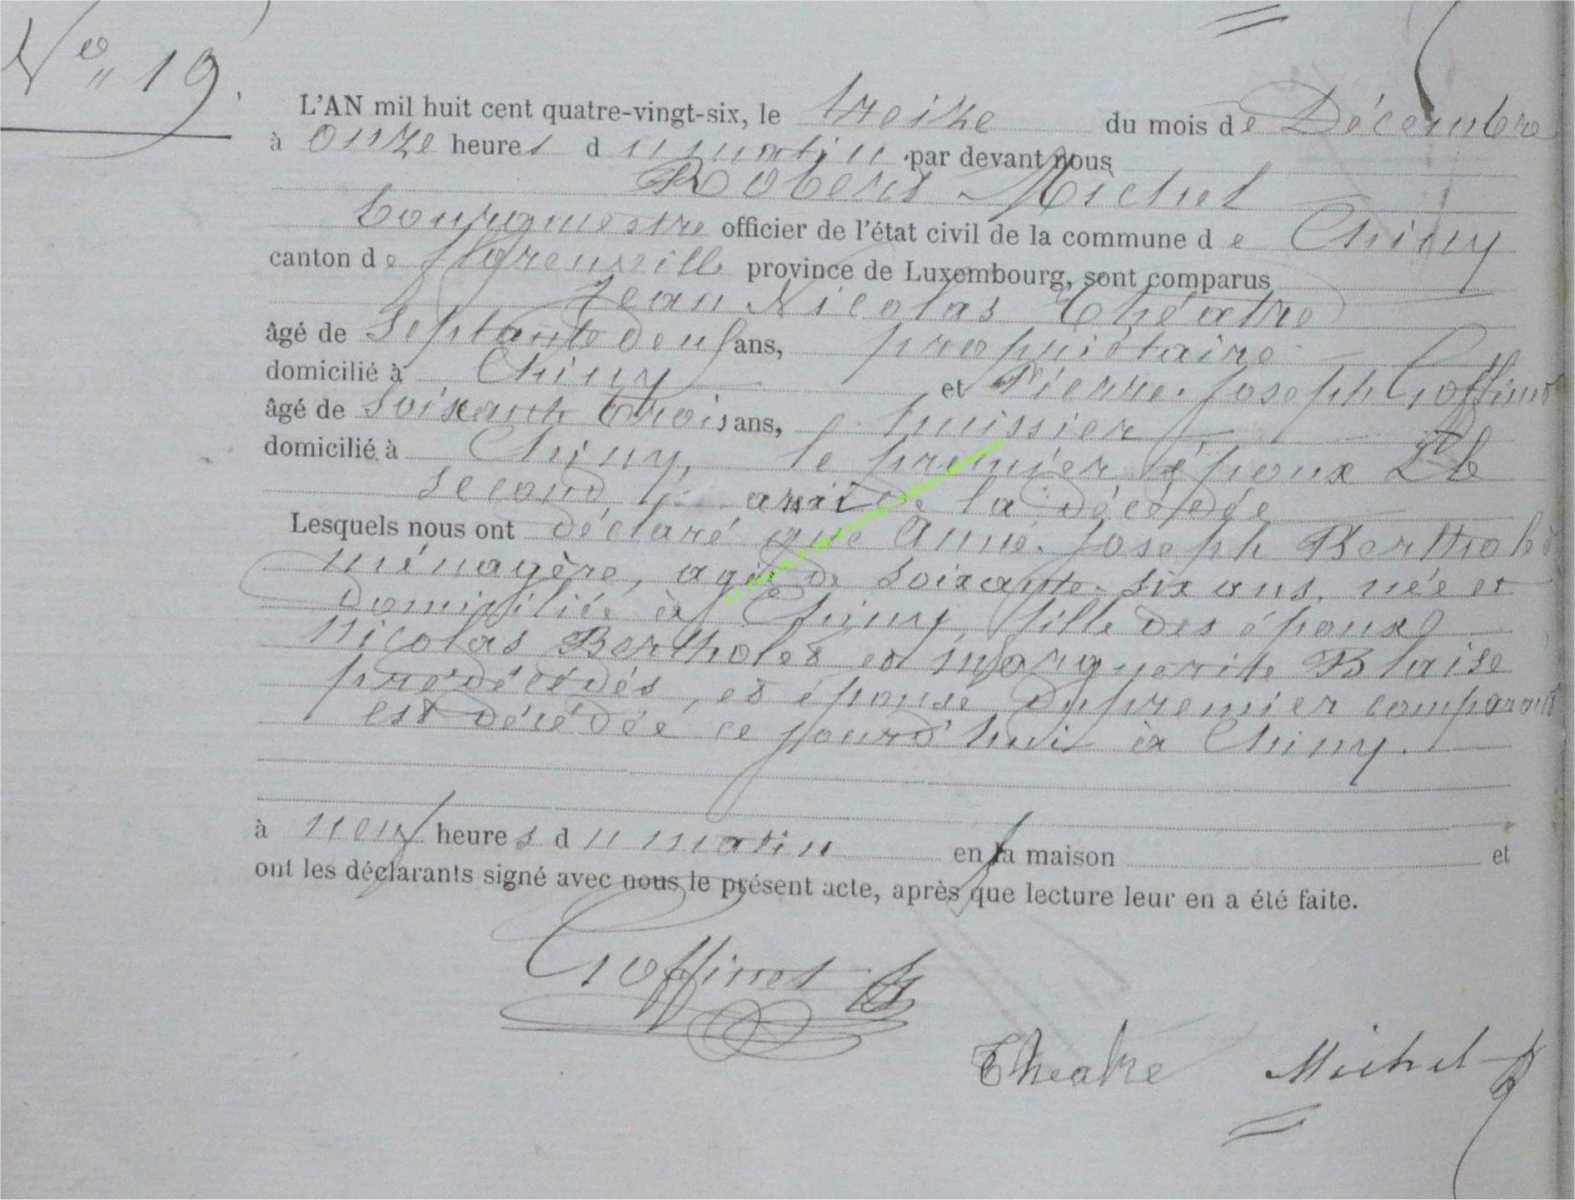 N° 19.
L'AN mil huit cent quatre-vingt-six, le treize du mois de Décembre
à onze heures du matin par devant nous
Robert Michel
bourgmestre officier de l'état civil de la commune de Chiny
canton de florenville province de Luxembourg, sont comparus
Jean Nicolas Théatre
âgé de Septante deux ans, propriétaire
domicilié à Chiny et Pierre Joseph Goffinet
âgé de Soixante trois ans, huissier
domicilié à Chiny, le premier époux & le
second ami de la décédée
Lesquels nous ont déclaré que Anne Joseph Bertholet
ménagère, agée de soixante-six ans, née et
domiciliée à Chiny, fille des époux
Nicolas Bertholet et Marguerite Blaise
prédécédés, et épouse du premier comparant
est décédée ce jourd'hui à Chiny.
à neuf heures du matin en sa maison et
ont les déclarants signé avec nous le présent acte, après que lecture leur en a été faite.
Goffinet
Theatre Michel